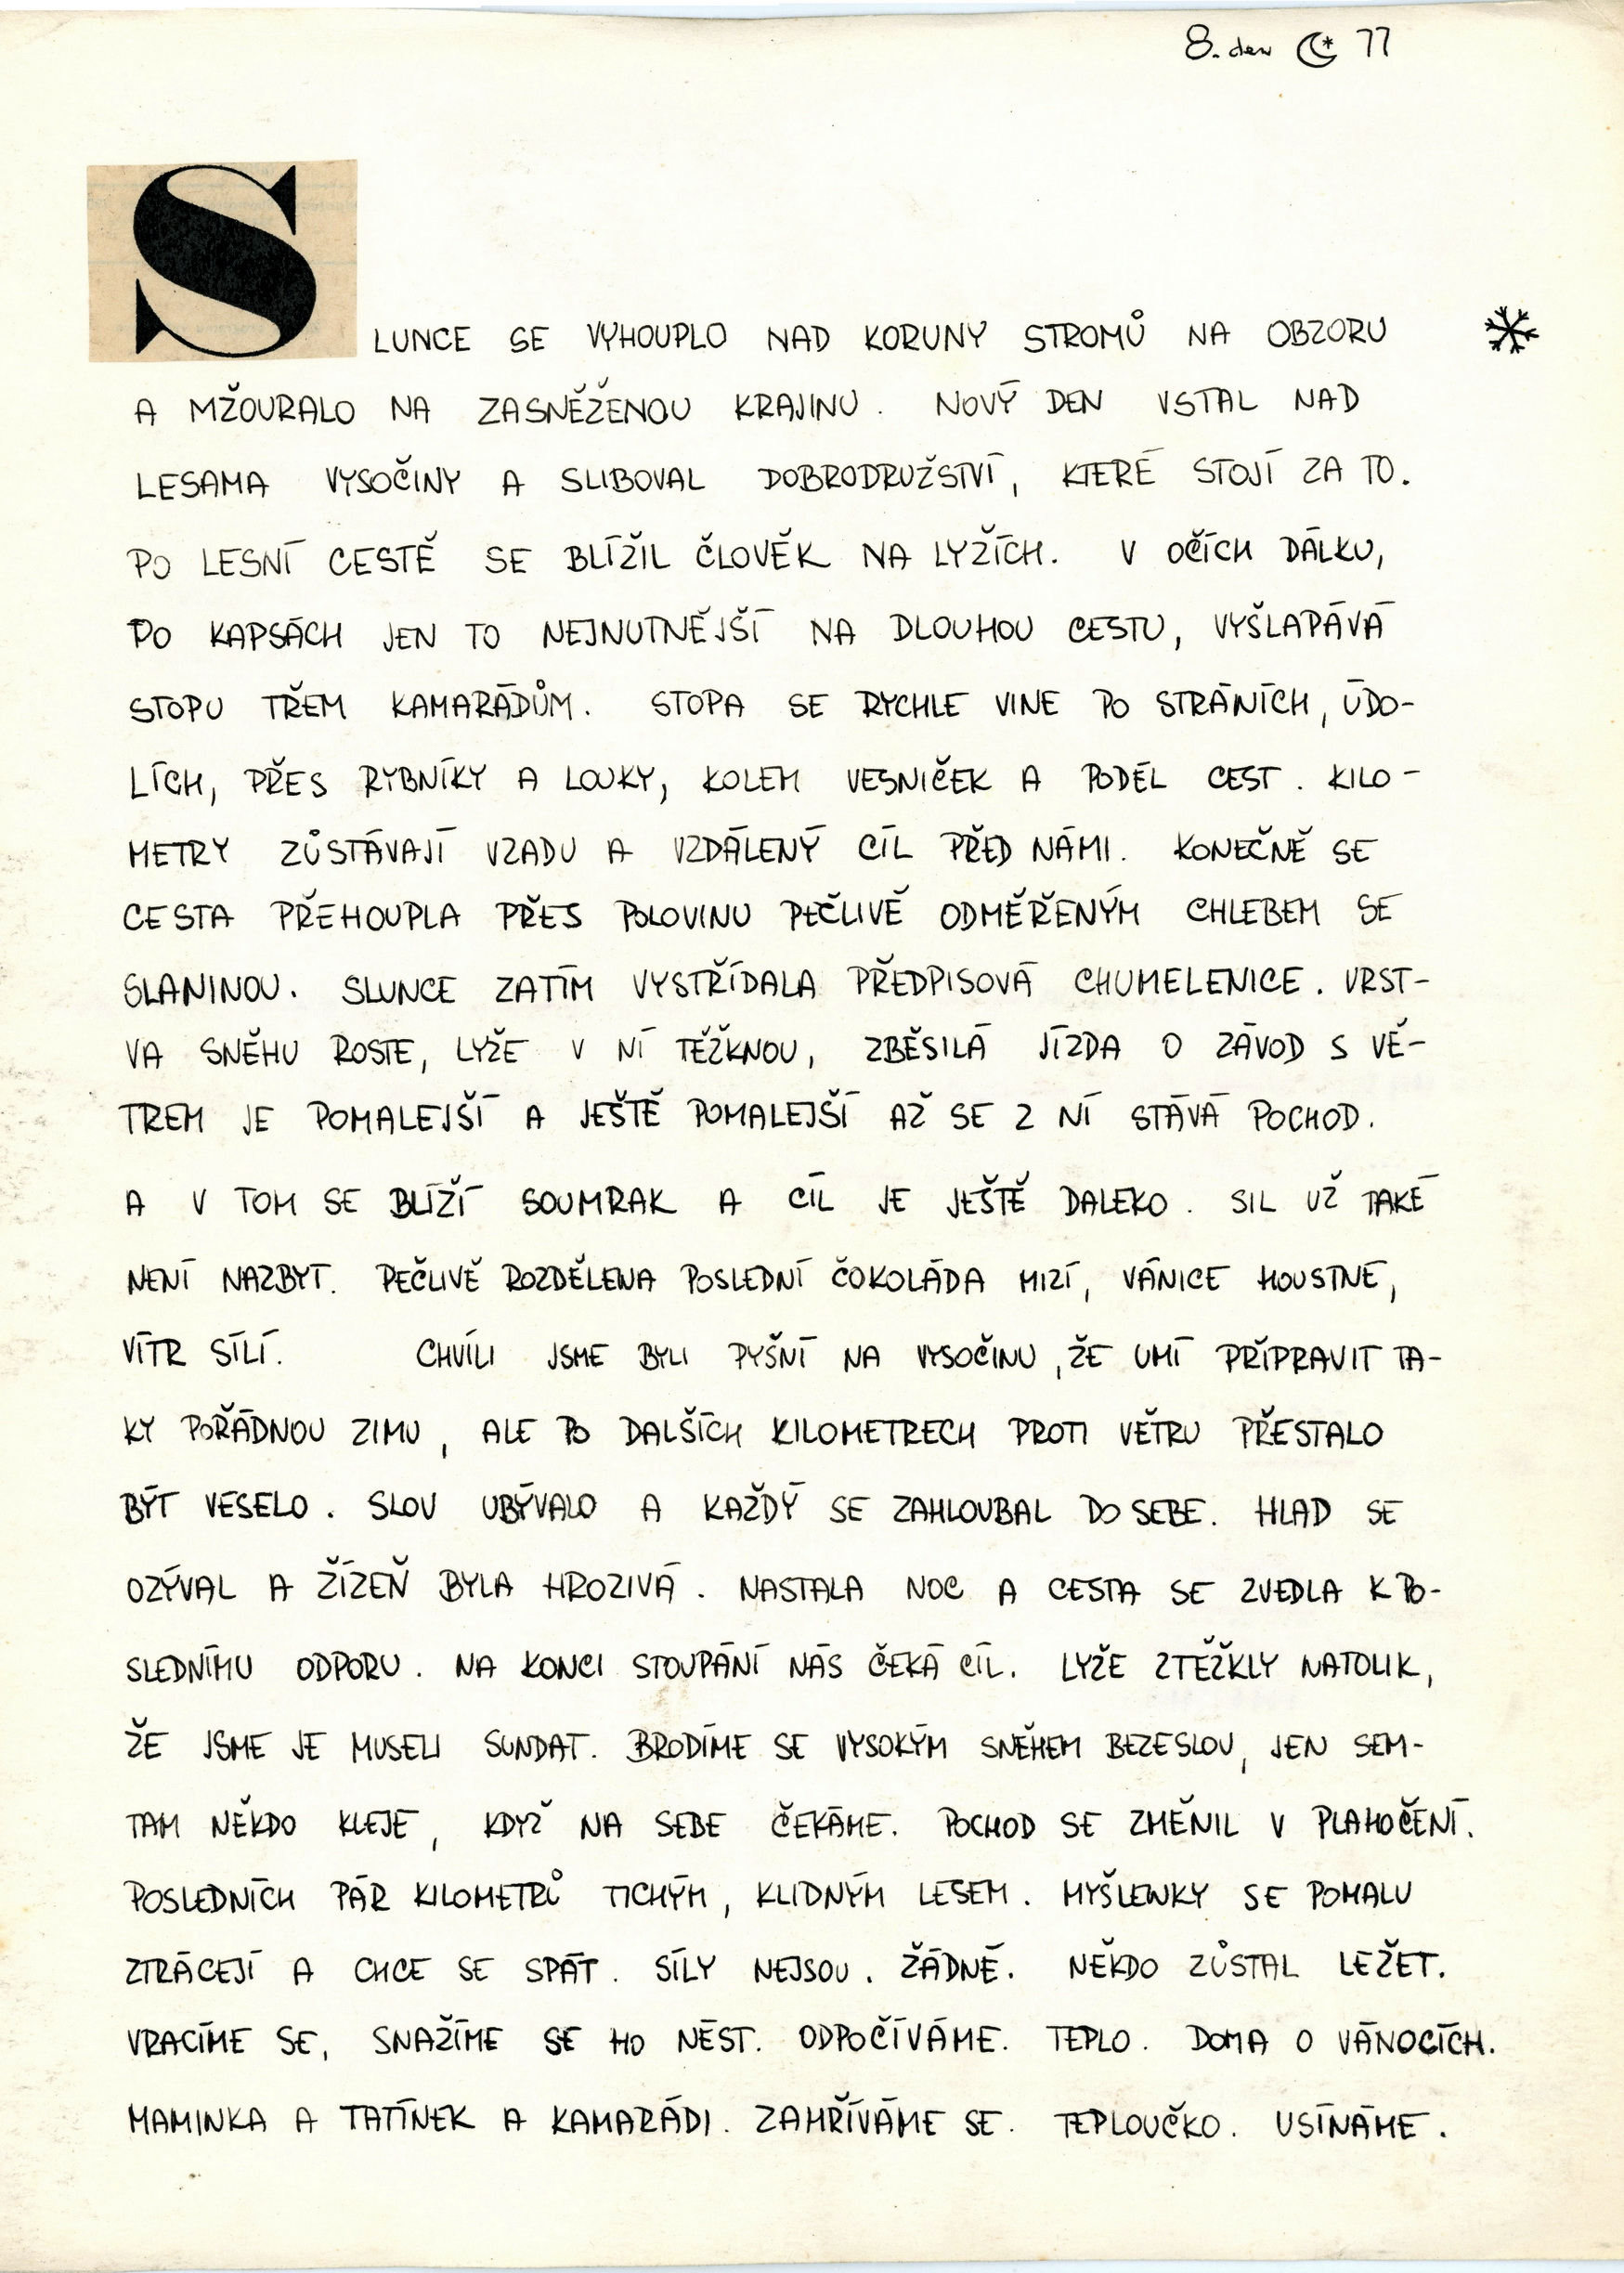 8. den ☪ 77
SLUNCE SE VYHOUPLO NAD KORUNY STROMŮ NA OBZORU
A MŽOURALO NA ZASNĚŽENOU KRAJINU. NOVÝ DEN VSTAL NAD
LESAMA VYSOČINY A SLIBOVAL DOBRODRUŽSTVÍ, KTERÉ STOJÍ ZA TO.
PO LESNÍ CESTĚ SE BLÍŽIL ČLOVĚK NA LYŽÍCH. V OČÍCH DÁLKU,
PO KAPSÁCH JEN TO NEJNUTNĚJŠÍ NA DLOUHOU CESTU, VYŠLAPÁVÁ
STOPU TŘEM KAMARÁDŮM. STOPA SE RYCHLE VINE PO STRÁNÍCH, ÚDO-
LÍCH, PŘES RYBNÍKY A LOUKY, KOLEM VESNIČEK A PODÉL CEST. KILO-
METRY ZŮSTÁVAJÍ VZADU A VZDÁLENÝ CÍL PŘED NÁMI. KONEČNĚ SE
CESTA PŘEHOUPLA PŘES POLOVINU PEČLIVĚ ODMĚŘENÝM CHLEBEM SE
SLANINOU. SLUNCE ZATÍM VYSTŘÍDALA PŘEDPISOVÁ CHUMELENICE. VRST-
VA SNĚHU ROSTE, LYŽE V NÍ TĚŽKNOU, ZBĚSILÁ JÍZDA O ZÁVOD S VĚ-
TREM JE POMALEJŠÍ A JEŠTĚ POMALEJŠÍ AŽ SE Z NÍ STÁVÁ POCHOD.
A V TOM SE BLÍŽÍ SOUMRAK A CÍL JE JEŠTĚ DALEKO. SIL UŽ TAKÉ
NENÍ NAZBYT. PEČLIVĚ ROZDĚLENA POSLEDNÍ ČOKOLÁDA MIZÍ, VÁNICE HOUSTNE,
VÍTR SÍLÍ. CHVÍLI JSME BYLI PYŠNÍ NA VYSOČINU, ŽE UMÍ PŘIPRAVIT TA-
KY POŘÁDNOU ZIMU, ALE PO DALŠÍCH KILOMETRECH PROTI VĚTRU PŘESTALO
BÝT VESELO. SLOV UBÝVALO A KAŽDÝ SE ZAHLOUBAL DO SEBE. HLAD SE
OZÝVAL A ŽÍZEŇ BYLA HROZIVÁ. NASTALA NOC A CESTA SE ZVEDLA K PO-
SLEDNÍMU ODPORU. NA KONCI STOUPÁNÍ NÁS ČEKÁ CÍL. LYŽE ZTĚŽKLY NATOLIK,
ŽE JSME JE MUSELI SUNDAT. BRODÍME SE VYSOKÝM SNĚHEM BEZESLOV, JEN SEM-
TAM NĚKDO KLEJE, KDYŽ NA SEBE ČEKÁME. POCHOD SE ZMĚNIL V PLAHOČENÍ.
POSLEDNÍCH PÁR KILOMETRŮ TICHÝM, KLIDNÝM LESEM. MYŠLENKY SE POMALU
ZTRÁCEJÍ A CHCE SE SPÁT. SÍLY NEJSOU. ŽÁDNÉ. NĚKDO ZŮSTAL LEŽET.
VRACÍME SE, SNAŽÍME SE HO NÉST. ODPOČÍVÁME. TEPLO. DOMA O VÁNOCÍCH.
MAMINKA A TATÍNEK A KAMARÁDI. ZAHŘÍVÁME SE. TEPLOUČKO. USÍNÁME.